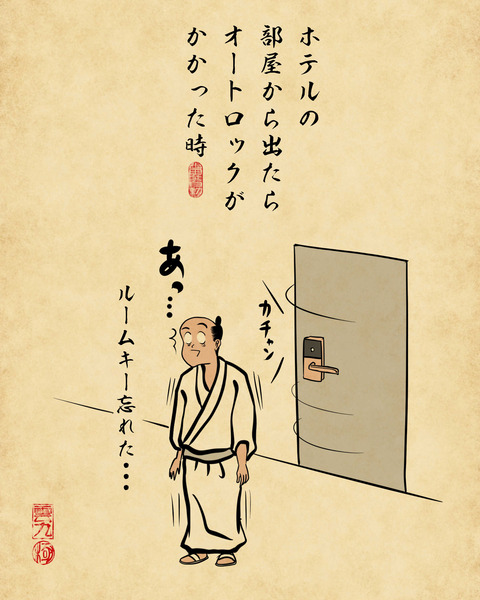 ホテルの
部屋から出たら
オートロックが
かかった時
カチャン
あっ…
ルームキー忘れた・・・